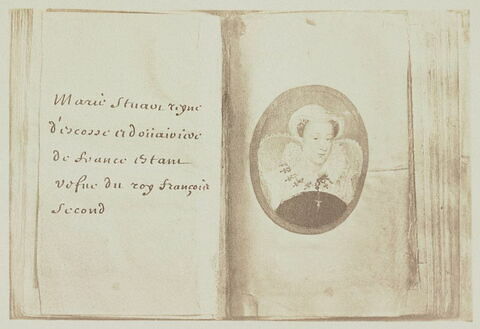 Marie Stuart reyne
d'escosse et doüairiere
de france estant
vefue du roy françois
second